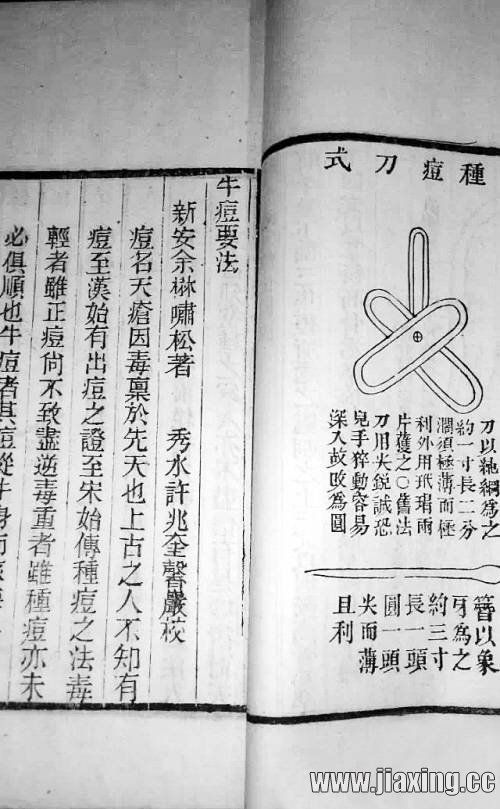 種痘刀式
刀以純鋼為之
約一寸長二分
濶須極薄而極
利外用玳瑁兩
片護之○舊法
刀用尖銳誠恐
兒手猝動容易
深入故改為圓
簪以象
牙為之
約三寸
長一頭
圓一頭
尖而薄
且利
牛痘要法
新安余楙嘯松著 秀水許兆奎聲嚴校
痘名天瘡因毒禀於先天也上古之人不知有
痘至漢始有出痘之證至宋始傳種痘之法毒
輕者雖正痘尙不致盡逆毒重者雖種痘亦未
必俱順也牛痘者其痘從牛身而
www.jiaxing.cc